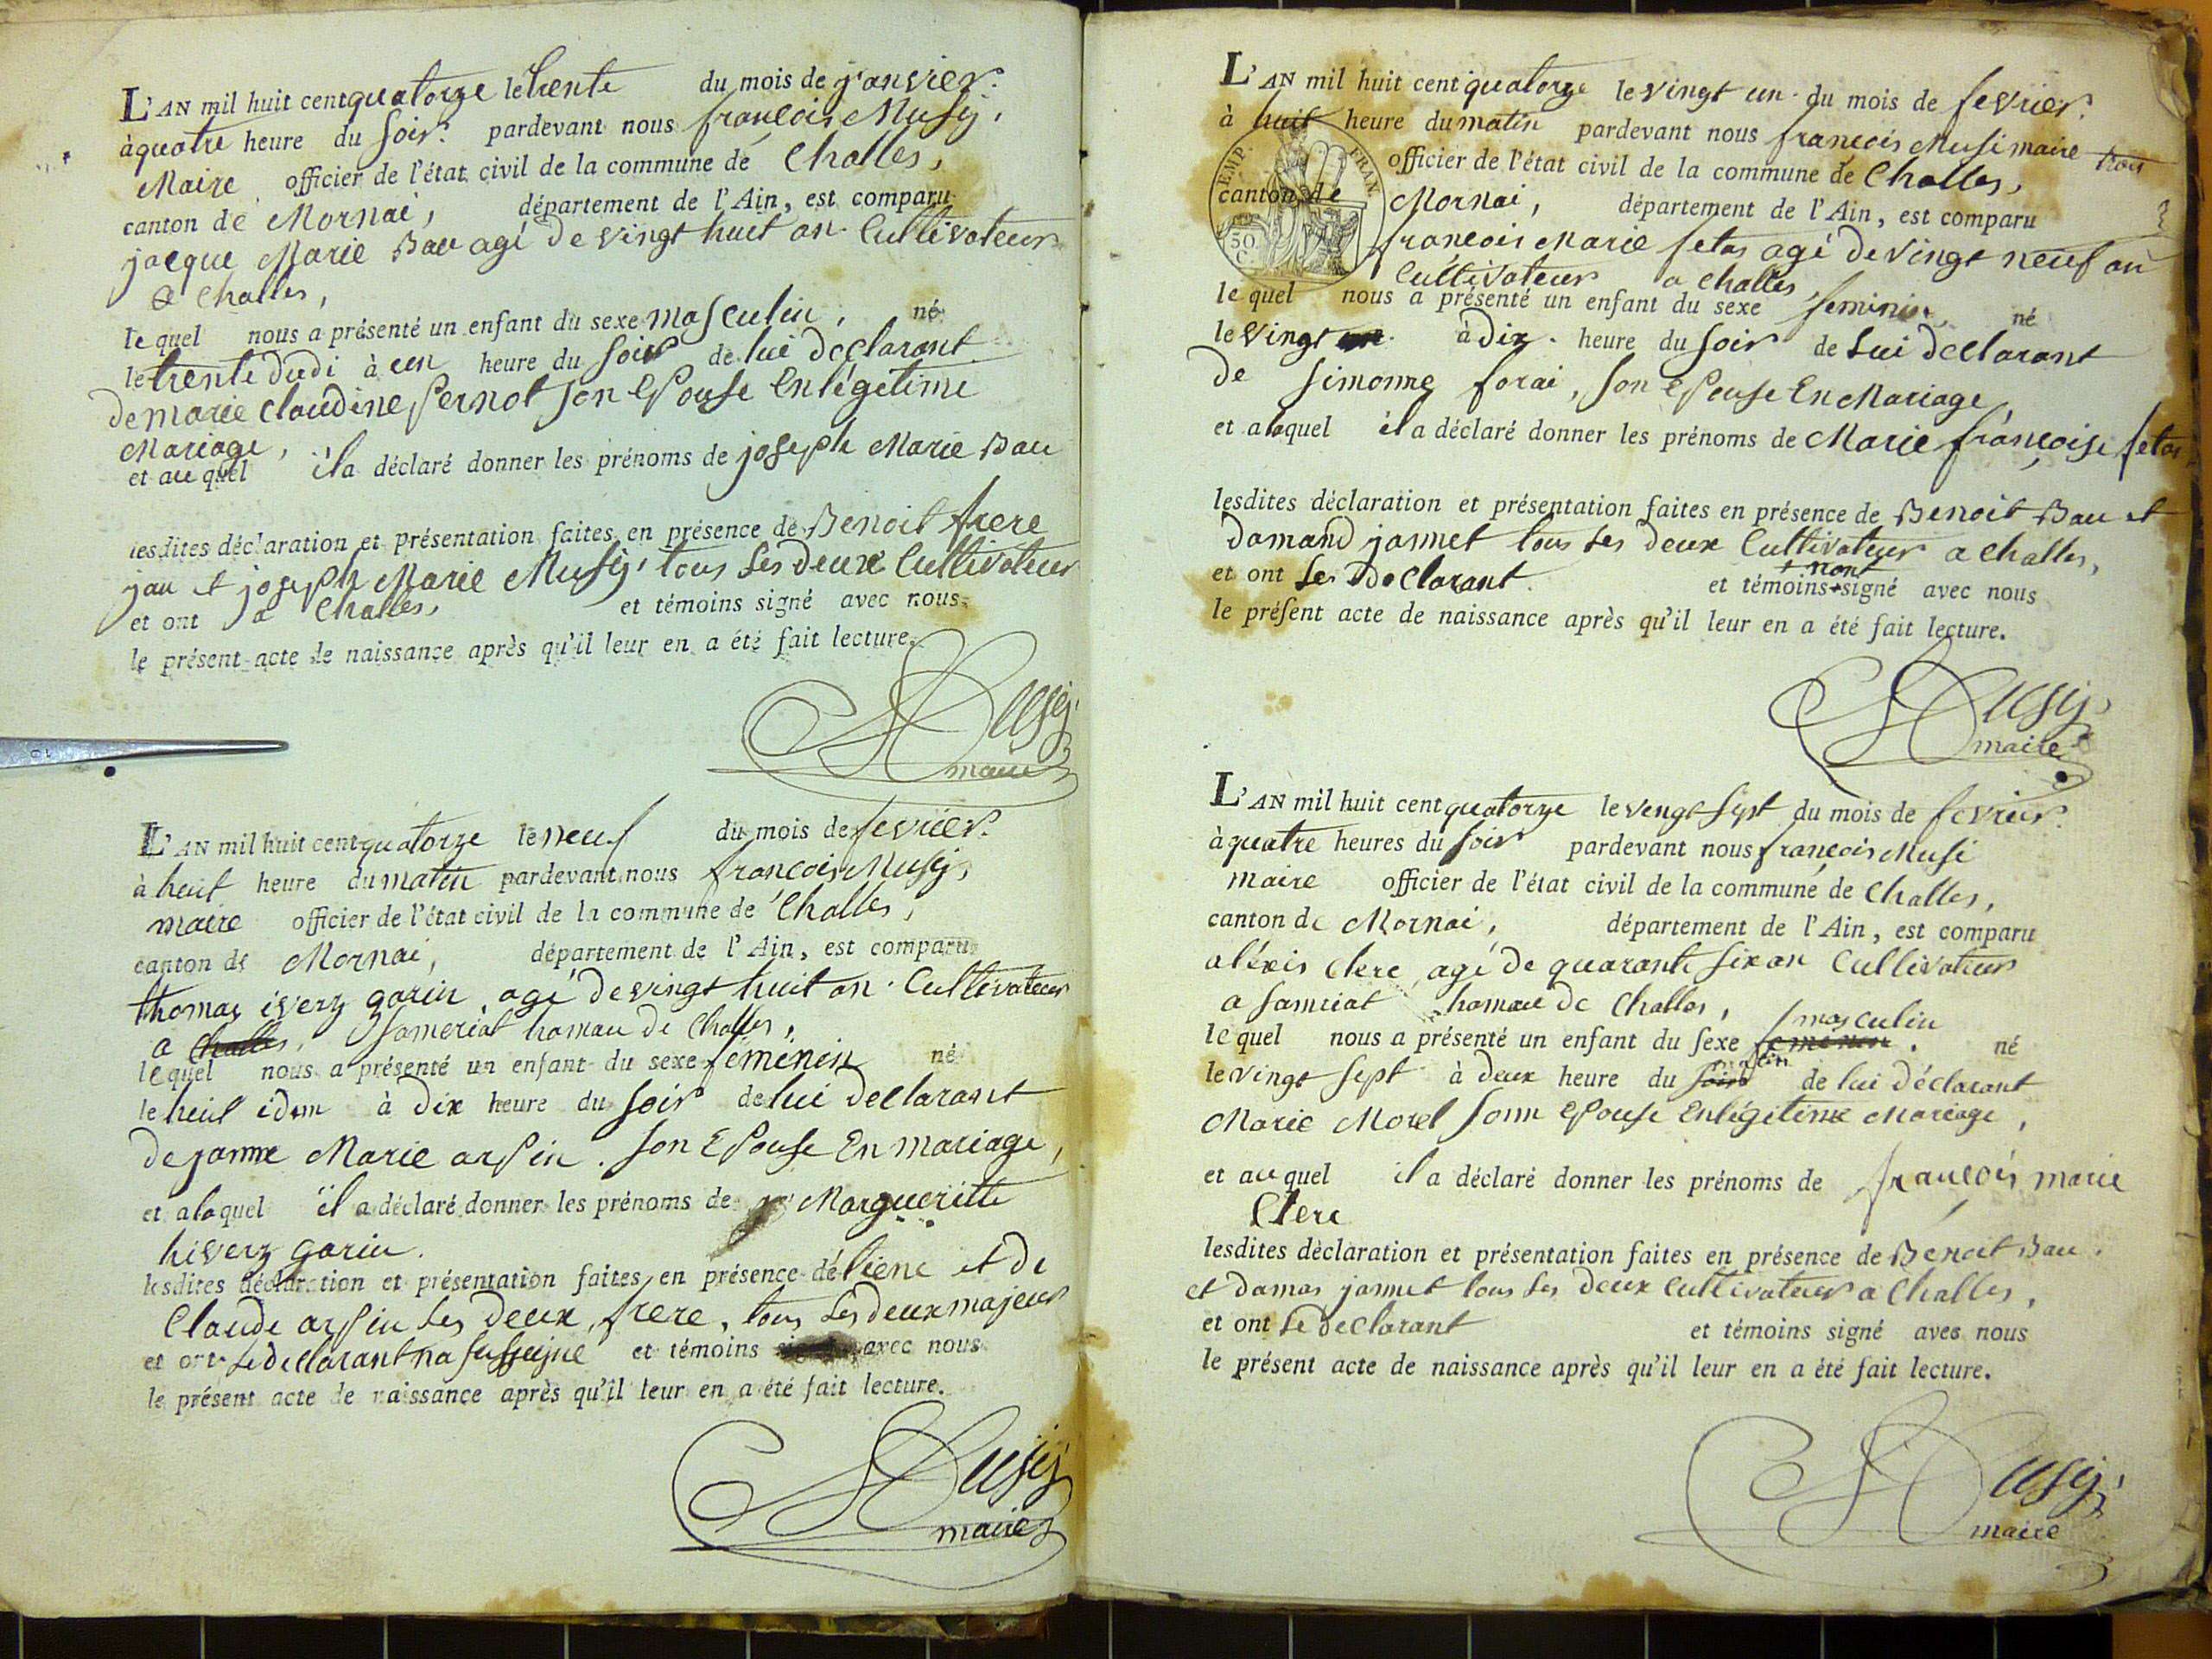 L'AN mil huit cent quatorze le trente du mois de janvier
à quatre heure du soir pardevant nous françois Musij,
Maire officier de l'état civil de la commune de Challes,
canton de Mornai, département de l'Ain, est comparu
jacque Marie Bau agé de vingt huit an Cultivateur
a Challes,
le quel nous a présenté un enfant du sexe masculin, né
le trente dudi à un heure du soir de lui declarant
de marie Claudine Pernot son Epouse En légetime
Mariage,
et au quel il a déclaré donner les prénoms de joseph Marie Bau
lesdites déclaration et présentation faites en présence de Benoit frere
jau et joseph Marie Musij, tous les deux Cultivateur
et ont a Challes, et témoins signé avec nous
le présent acte de naissance après qu'il leur en a été fait lecture.
Musij,
maire
L'AN mil huit cent quatorze le neuf du mois de fevrier
à huit heure du matin pardevant nous françois Musij,
maire officier de l'état civil de la commune de Challes,
canton de Mornai, département de l'Ain, est comparu
thomas iverz garin, agé de vingt huit an Cultivateur
a Challes, Sameriat hamau de Challes,
le quel nous a présenté un enfant du sexe féminin né
le huit idem à dix heure du soir de lui declarant
de janne Marie arpin son Epouse En mariage,
et a laquel il a déclaré donner les prénoms de Margueritte
hiverz garin.
lesdites déclaration et présentation faites en présence de et de
Claude arpin les deux frere, tous les deux majeur
et ont le declarant na et témoins avec nous
le présent acte de naissance après qu'il leur en a été fait lecture.
Musij,
maire
L'AN mil huit cent quatorze le vingt un du mois de fevrier
à huit heure du matin pardevant nous françois Musi maire
trois
officier de l'état civil de la commune de Challes,
EMP. FRAN.
canton de Mornai, département de l'Ain, est comparu
françois Marie fetas agé de vingt neuf an
50 C.
Cultivateur a Challes,
le quel nous a présenté un enfant du sexe feminin, né
le vingt un à dix heure du soir de Lui declarant
de Simonne forai, son Epouse En Mariage,
et a laquel il a déclaré donner les prénoms de Marie françoise fetas
lesdites déclaration et présentation faites en présence de Benoit Bau et
damand jannet tous les deux Cultivateur a Challes,
+ nont
et ont Les declarant et témoins + signé avec nous
le présent acte de naissance après qu'il leur en a été fait lecture.
Musij,
maire
L'AN mil huit cent quatorze le vengt sept du mois de fevrier
à quatre heures du soir pardevant nous françois Musi
maire officier de l'état civil de la commune de Challes,
canton de Mornai, département de l'Ain, est comparu
aléxis Clerc agé de quarante six an Cultivateur
a Samriat hamau de Challes,
masculin
le quel nous a présenté un enfant du sexe feminin. né
matin
le vingt sept à deux heure du soir de lui déclarant
Marie Morel sonn Epouse En légitime Mariage,
et au quel il a déclaré donner les prénoms de françois marie
Clerc
lesdites déclaration et présentation faites en présence de Benoit Bau.
et damas jannet tous les deux Cultivateur a Challes,
et ont le declarant et témoins signé avec nous
le présent acte de naissance après qu'il leur en a été fait lecture.
Musij,
maire